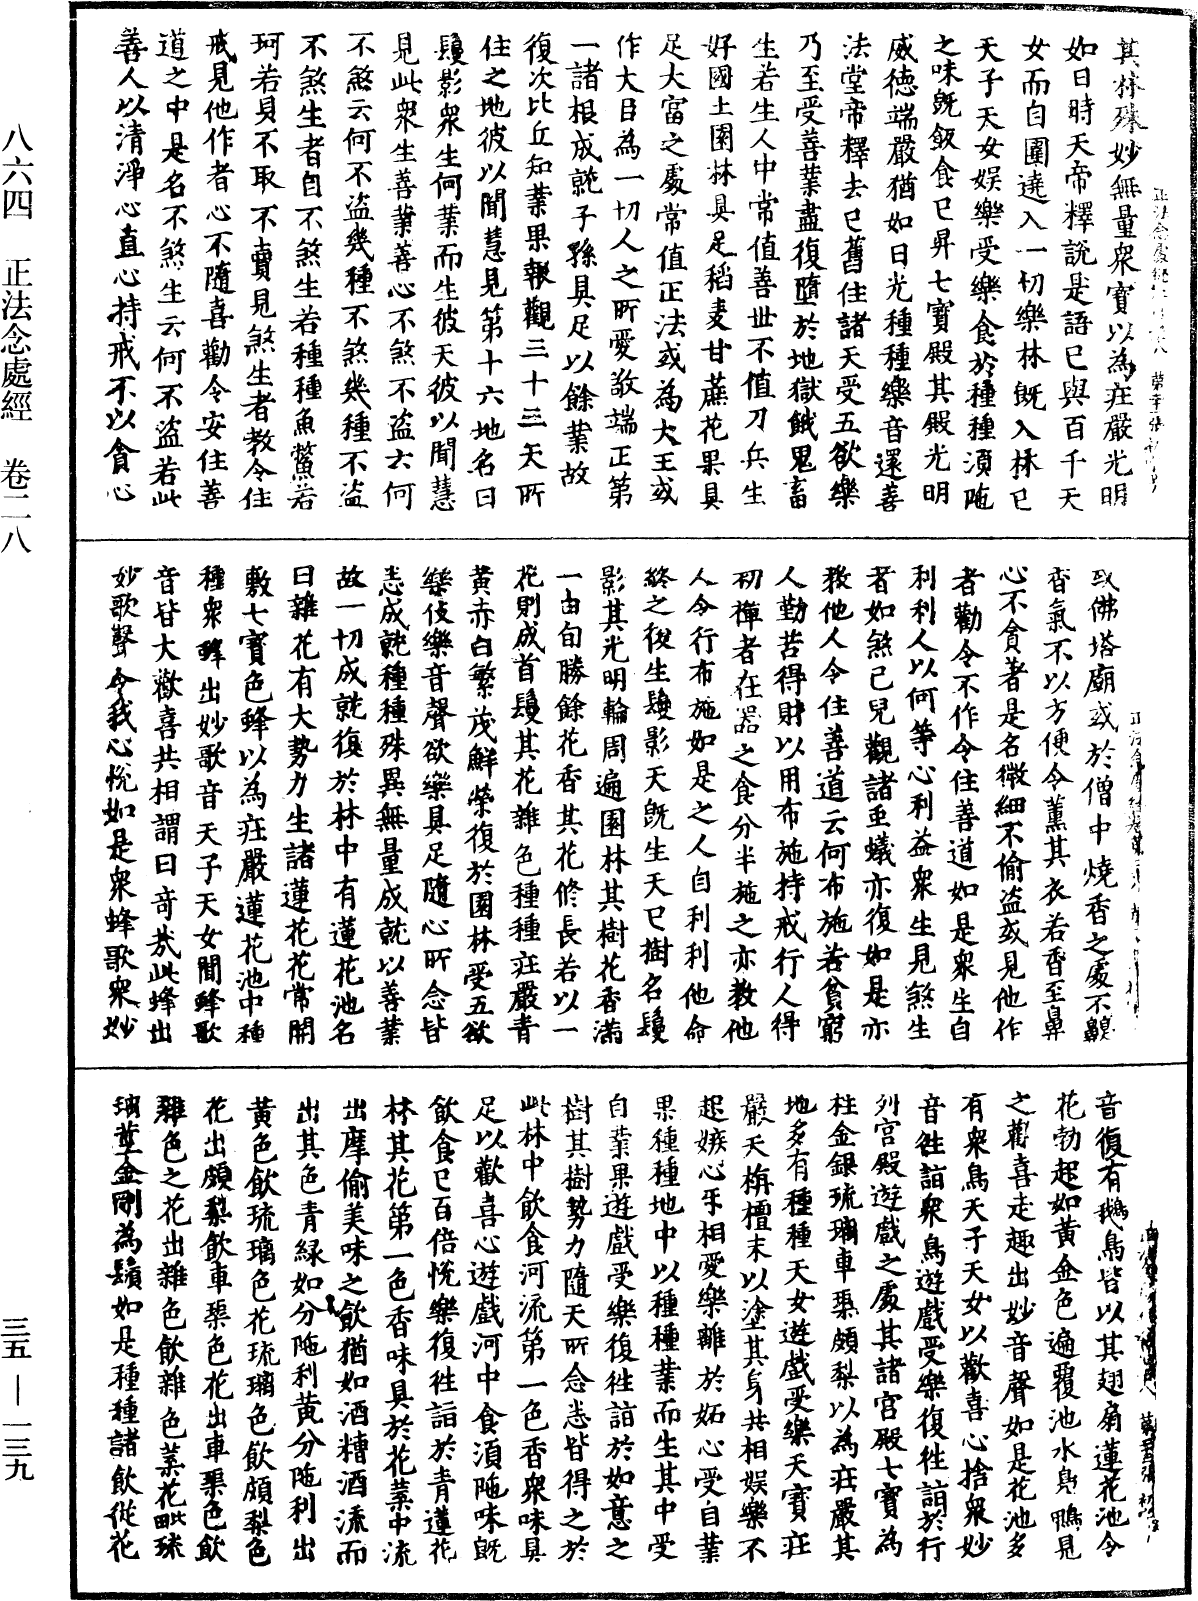 八六四　正法念處經　卷二八
三五—一三九
其林殊妙無量眾寶以為莊嚴光明
如日時天帝釋說是語已與百千天
女而自圍遶入一切樂林既入林已
天子天女娛樂受樂食於種種須陁
之味既飯食已昇七寶殿其殿光明
威德端嚴猶如日光種種樂音還善
法堂帝釋去已舊住諸天受五欲樂
乃至受善業盡復墮於地獄餓鬼畜
生若生人中常值善世不值刀兵生
好國土園林具足稻麦甘蔗花果具
足大富之處常值正法或為大王或
作大臣為一切人之所愛敬端正第
一諸根成就子孫具足以餘業故
復次比丘知業果報觀三十三天所
住之地彼以聞慧見第十六地名曰
鬘影眾生何業而生彼天彼以聞慧
見此眾生善業善心不煞不盜云何
不煞云何不盜幾種不煞幾種不盜
不煞生者自不煞生若種種魚鱉若
珂若貝不取不賣見煞生者教令住
戒見他作者心不隨喜勸令安住善
道之中是名不煞生云何不盜若此
善人以清淨心直心持戒不以貪心
取佛塔廟或於僧中燒香之處不齅
香氣不以方便令薰其衣若香至鼻
心不貪著是名微細不偷盜或見他作
者勸令不作令住善道如是眾生自
利利人以何等心利益眾生見煞生
者如煞己兒觀諸虫蟻亦復如是亦
教他人令住善道云何布施若貧窮
人勤苦得財以用布施持戒行人得
初禪者在器之食分半施之亦教他
人令行布施如是之人自利利他命
終之後生鬘影天既生天已樹名鬘
影其光明輪周遍園林其樹花香滿
一由旬勝餘花香其花脩長若以一
花則成首鬘其花雜色種種莊嚴青
黃赤白繁茂鮮榮復於園林受五欲
樂伎樂音聲欲樂具足隨心所念皆
悉成就種種殊異無量成就以善業
故一切成就復於林中有蓮花池名
曰雜花有大勢力生諸蓮花花常開
敷七寶色蜂以為莊嚴蓮花池中種
種眾蜂出妙歌音天子天女聞蜂歌
音皆大歡喜共相謂曰奇哉此蜂出
妙歌聲令我心悅如是眾蜂歌眾妙
音復有鵝鳥皆以其翅扇蓮花池令
花勃起如黃金色遍覆池水鳧鴨見
之歡喜走趣出妙音聲如是花池多
有眾鳥天子天女以歡喜心捨眾妙
音往詣眾鳥遊戲受樂復往詣於行
列宮殿遊戲之處其諸宮殿七寶為
柱金銀琉璃車𤦲頗梨以為莊嚴其
地多有種種天女遊戲受樂天寶莊
嚴天栴檀末以塗其身共相娛樂不
起嫉心互相愛樂離於妬心受自業
果種種地中以種種業而生其中受
自業果遊戲受樂復往詣於如意之
樹其樹勢力隨天所念悉皆得之於
此林中飲食河流第一色香眾味具
足以歡喜心遊戲河中食須陁味既
飲食已百倍悅樂復往詣於青蓮花
林其花第一色香味具於花葉中流
出摩偷美味之飲猶如酒糟酒流而
出其色青綠如分陁利黃分陁利出
黃色飲琉璃色花琉璃色飲頗梨色
花出頗梨飲車𤦲色花出車𤦲色飲
雜色之花出雜色飲雜色葉花毗琉
璃莖金剛為鬚如是種種諸飲從花